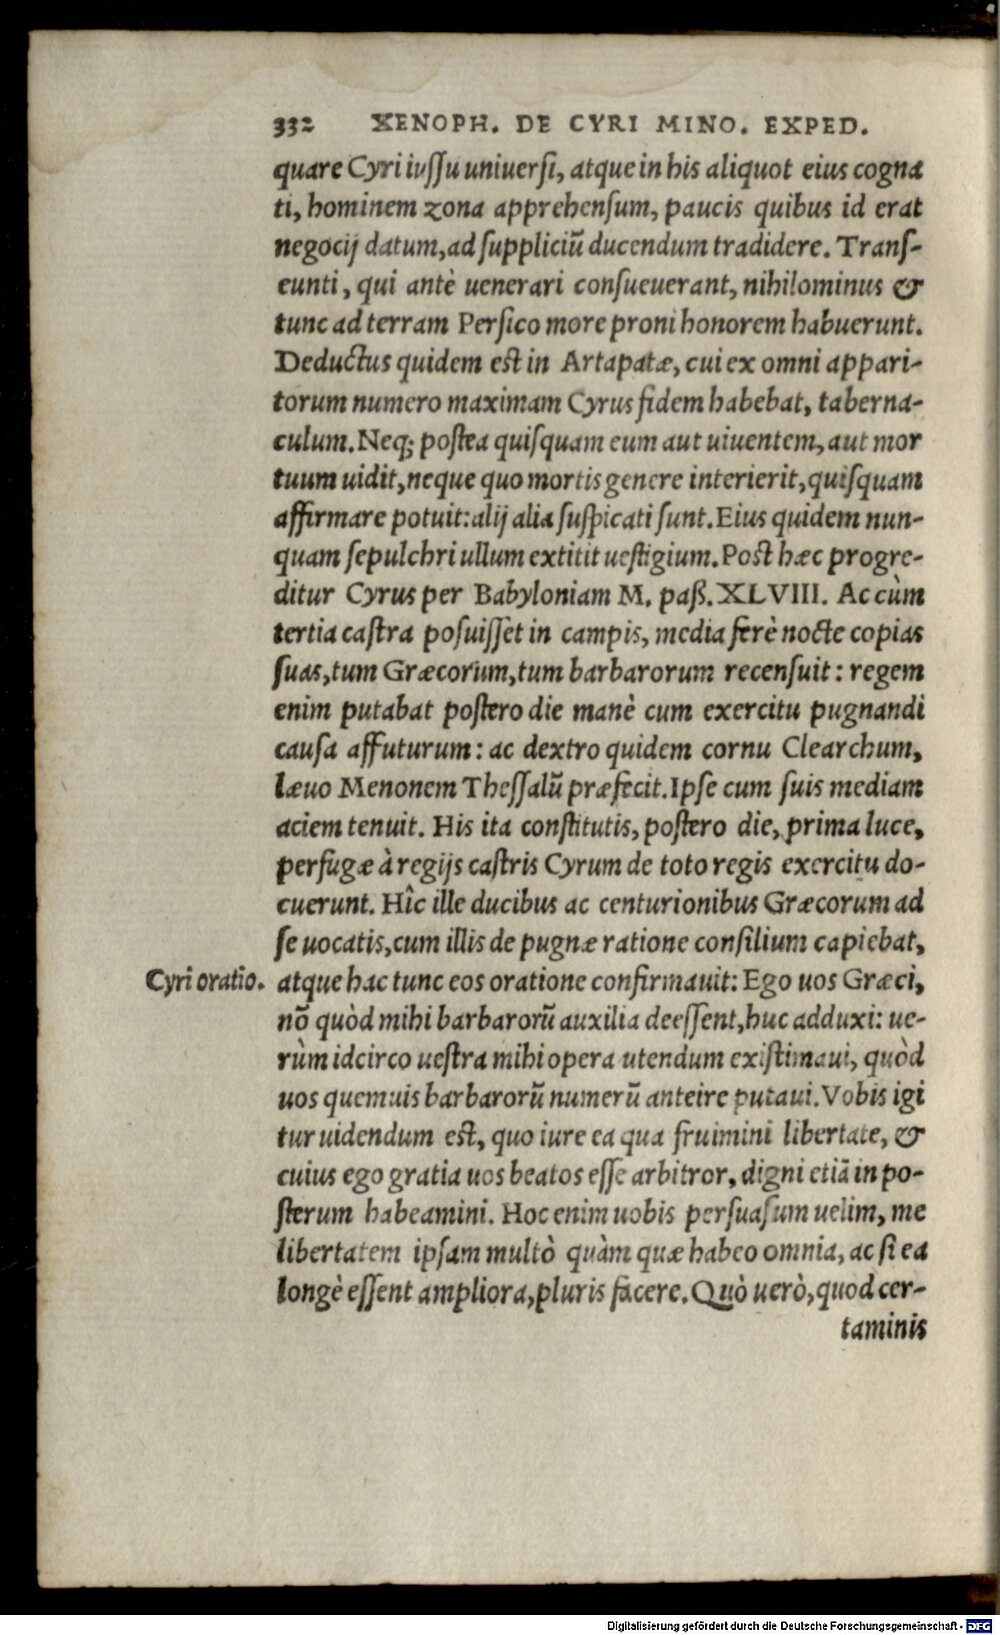 332 XENOPH. DE CYRI MINO. EXPED.
quare Cyri iuſſu uniuerſi, atque in his aliquot eius cogna
ti, hominem zona apprehenſum, paucis quibus id erat
negocij datum, ad ſuppliciũ ducendum tradidere. Tranſ-
eunti, qui antè uenerari conſueuerant, nihilominus &
tunc ad terram Perſico more proni honorem habuerunt.
Deductus quidem est in Artapatæ, cui ex omni appari-
torum numero maximam Cyrus fidem habebat, taberna-
culum. Neq; poſtea quiſquam eum aut uiuentem, aut mor
tuum uidit, neque quo mortis genere interierit, quiſquam
affirmare potuit: alij alia ſuſpicati ſunt. Eius quidem nun-
quam ſepulchri ullum extitit ueſtigium. Poſt hæc progre-
ditur Cyrus per Babyloniam M. paß. XLVIII. Ac cùm
tertia caſtra poſuiſſet in campis, media ferè nocte copias
ſuas, tum Græcorum, tum barbarorum recenſuit: regem
enim putabat poſtero die manè cum exercitu pugnandi
cauſa affuturum: ac dextro quidem cornu Clearchum,
læuo Menonem Theſſalũ præfecit. Ipſe cum ſuis mediam
aciem tenuit. His ita conſtitutis, poſtero die, prima luce,
perfugæ à regijs caſtris Cyrum de toto regis exercitu do-
cuerunt. Hîc ille ducibus ac centurionibus Græcorum ad
ſe uocatis, cum illis de pugnæ ratione conſilium capiebat,
Cyri oratio. atque hac tunc eos oratione confirmauit: Ego uos Græci,
nõ quòd mihi barbarorũ auxilia deeſſent, huc adduxi: ue-
rùm idcirco ueſtra mihi opera utendum exiſtimaui, quòd
uos quemuis barbarorũ numerũ anteire putaui. Vobis igi
tur uidendum eſt, quo iure ea qua fruimini libertate, &
cuius ego gratia uos beatos eſſe arbitror, digni etiã in po-
ſterum habeamini. Hoc enim uobis perſuaſum uelim, me
libertatem ipſam multò quàm quæ habeo omnia, ac ſi ea
longè eſſent ampliora, pluris facere. Quò uerò, quod cer-
taminis
Digitalisierung gefördert durch die Deutsche Forschungsgemeinschaft - DFG